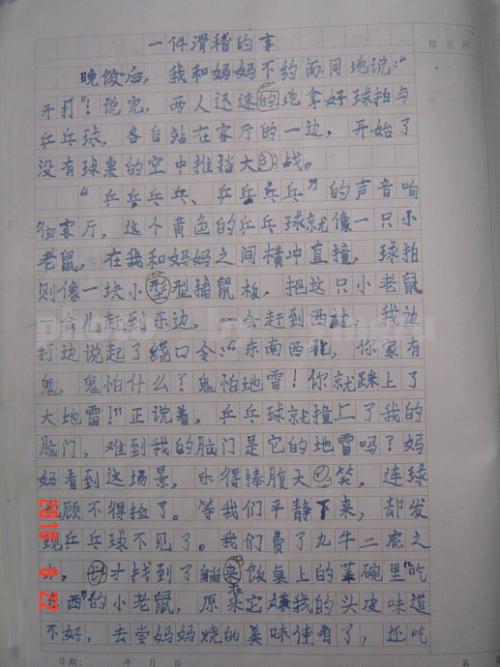 一件滑稽的事
晚饭后，我和妈妈不约而同地说："
开打"！说完，两人迅速的地拿好球拍与
乒乓球，各自站在客厅的一边，开始了
没有球桌的空中推挡大战。
"乒乒乓乓、乒乒乓乓"的声音响
彻客厅，这个黄色的乒乓球就像一只小
老鼠，在我和妈妈之间横冲直撞，球拍
则像一块小型型捕鼠板，把这只小老鼠
一会儿赶到东边，一会赶到西边，我边
打边说起了绕口令："东南西北，你家有
鬼，鬼怕什么？鬼怕地雷！你就踩上了
大地雷！"正说着，乒乓球就撞上了我的
脑门，难到我的脑门是它的地雷吗？妈
妈看到这场景，乐得捧腹大笑，连球
顾不得捡了。等我们平静下来，却发
现乒乓球不见了。我们费了九牛二虎之
才找到了躺饭桌上的菜碗里"吃
西"的小老鼠，原来它嫌我的头皮味道
不好，去尝妈妈烧的美味佳肴了，还吃
2010 6 22
日期： 年 月 日